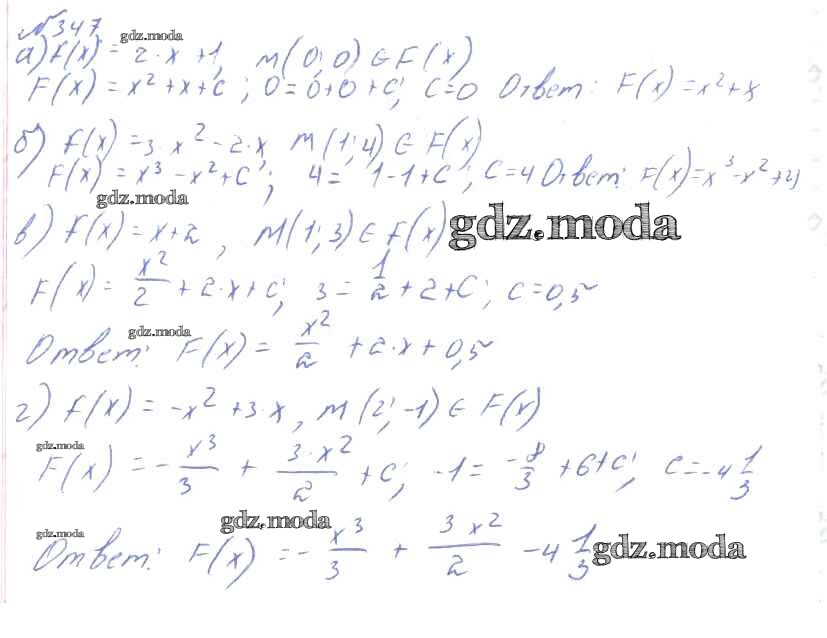 №347
gdz.moda
а) f(x) = 2·x +1, M(0; 0) ∈ F(x)
F(x) = x² + x + C; 0 = 0 + 0 + C; C = 0 Ответ: F(x) = x² + x
б) f(x) = 3·x² - 2·x M(1; 4) ∈ F(x)
F(x) = x³ - x² + C; 4 = 1 - 1 + C; C = 4 Ответ: F(x) = x³ - x² + 4
gdz.moda
в) f(x) = x + 2, M(1; 3) ∈ F(x)
gdz.moda
F(x) = x²/2 + 2·x + C; 3 = 1/2 + 2 + C; C = 0,5
gdz.moda
Ответ: F(x) = x²/2 + 2·x + 0,5
г) f(x) = -x² + 3·x, M(2; -1) ∈ F(x)
gdz.moda
F(x) = -x³/3 + 3·x²/2 + C; -1 = -8/3 + 6 + C; C = -4 1/3
gdz.moda
gdz.moda
Ответ: F(x) = -x³/3 + 3x²/2 - 4 1/3
gdz.moda